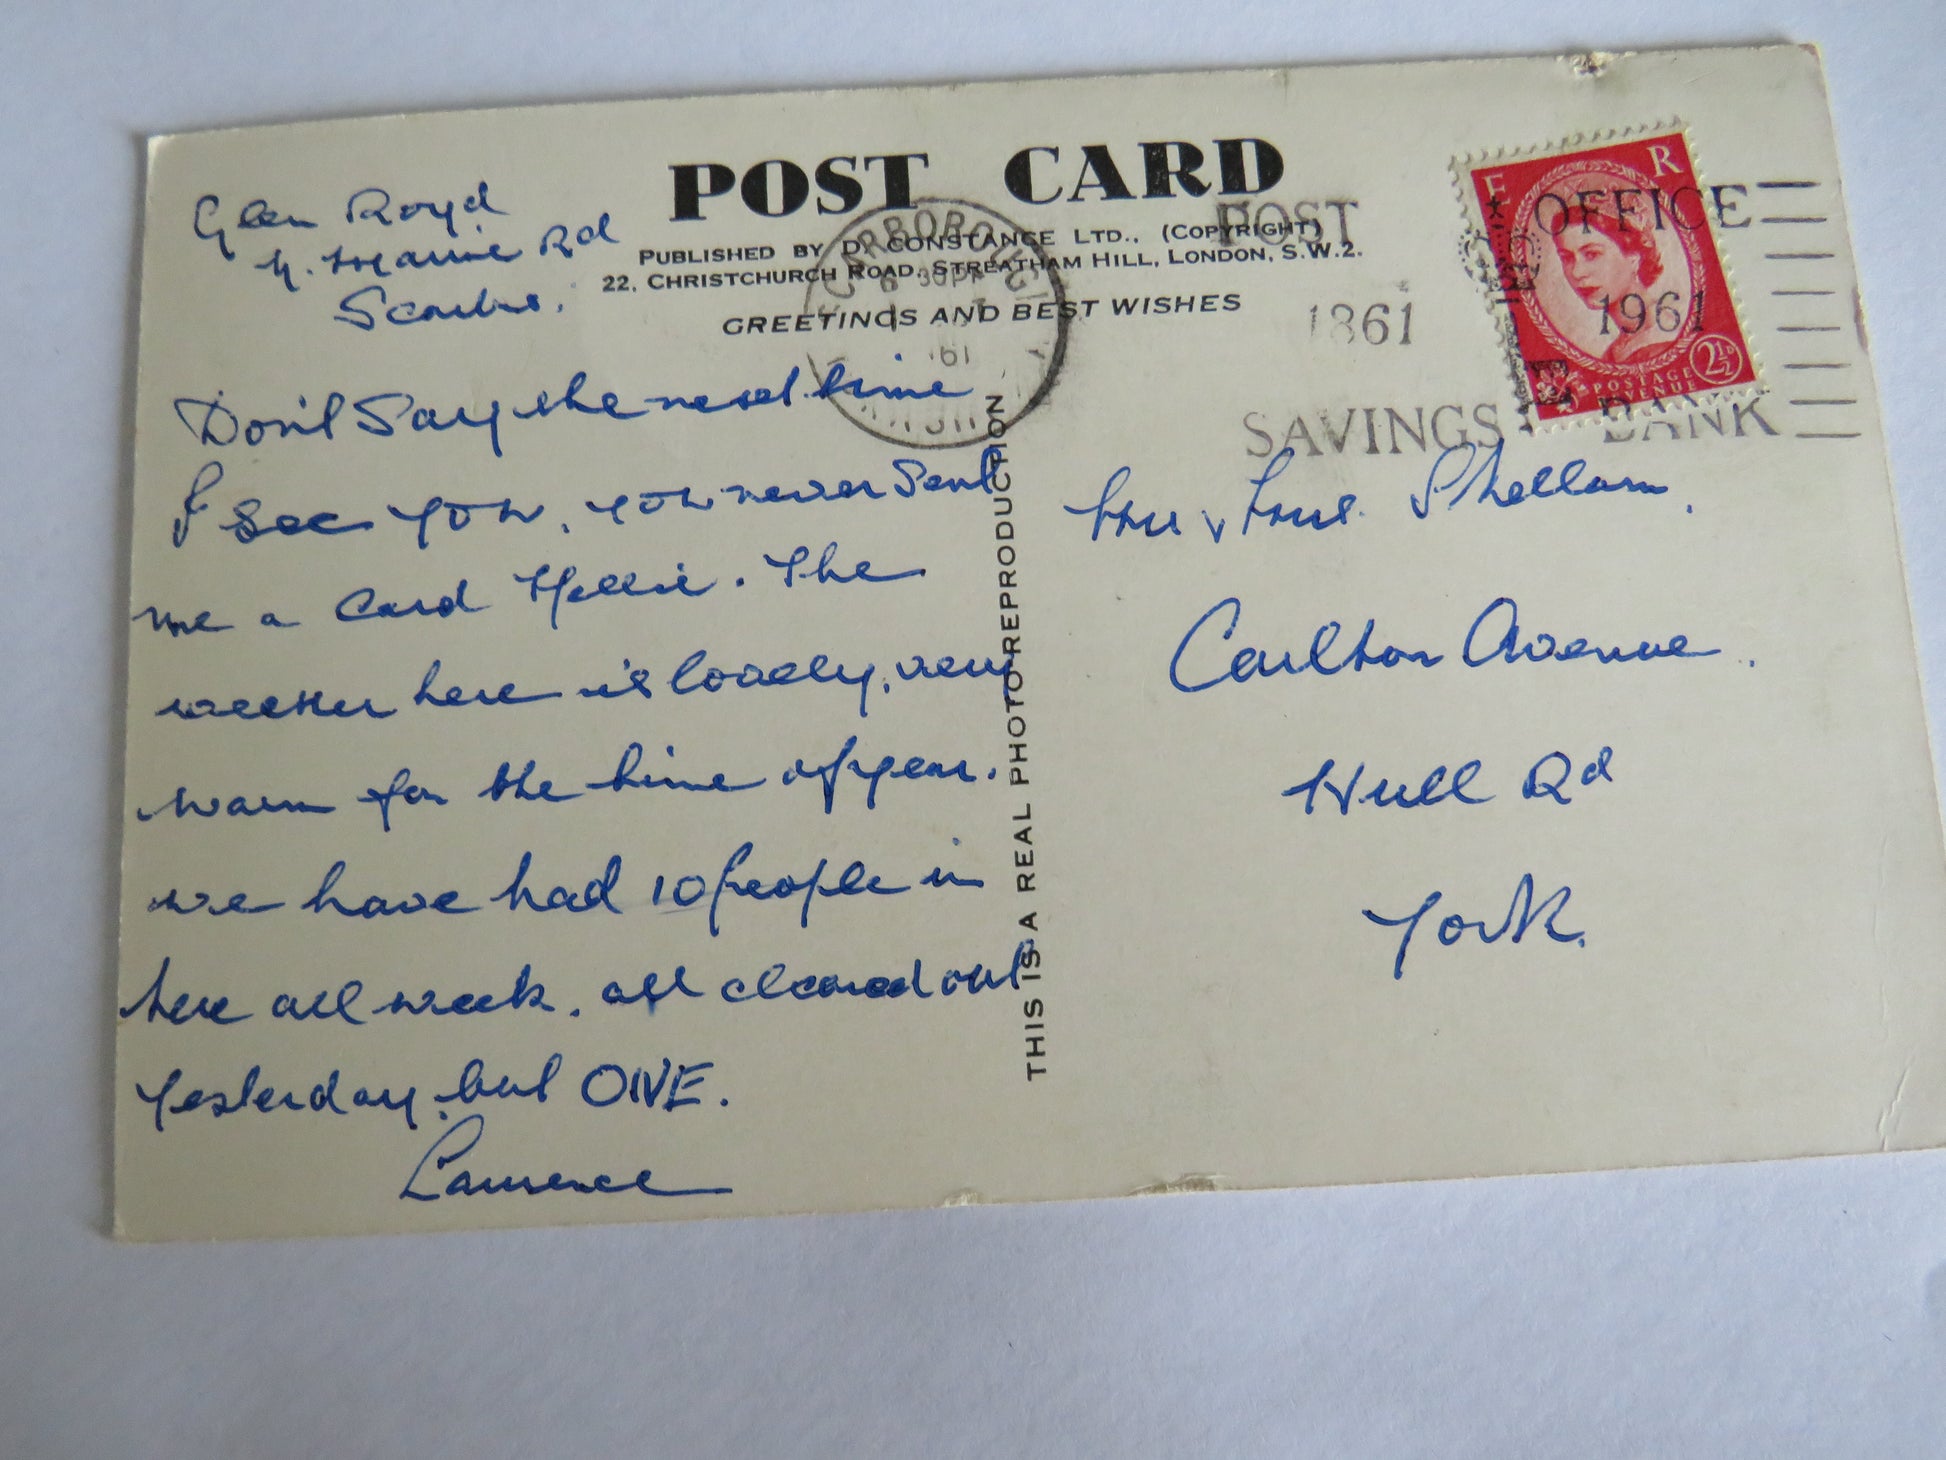 POST CARD
PUBLISHED BY D. CONSTANCE LTD., (COPYRIGHT)
22, CHRISTCHURCH ROAD, STREATHAM HILL, LONDON, S.W.2.
GREETINGS AND BEST WISHES
Glen Royd
N. Marine Rd
Scarbro.
Don't Say the next time
I see you, you never sent
me a card Nellie. The
weather here is lovely, very
warm for the time of year.
we have had 10 people in
here all week. all cleared out
yesterday, but ONE.
Laurence
THIS IS A REAL PHOTO REPRODUCTION
SCARBOROUGH
1961
POST OFFICE
1861 1961
SAVINGS BANK
E R
POSTAGE
REVENUE
2½D
Mr & Mrs. Shellam.
Carlton Avenue.
Hull Rd
York.